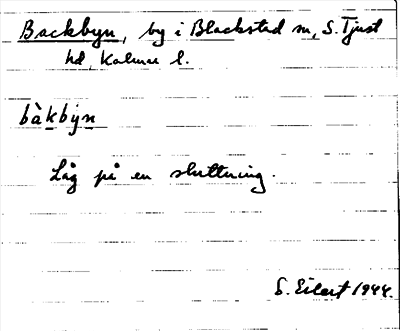 Backbyn, by i Blackstad sn, S. Tjust
hd, Kalmar l.
bàkbýn
Låg på en sluttning.
S. Eilert 1944.